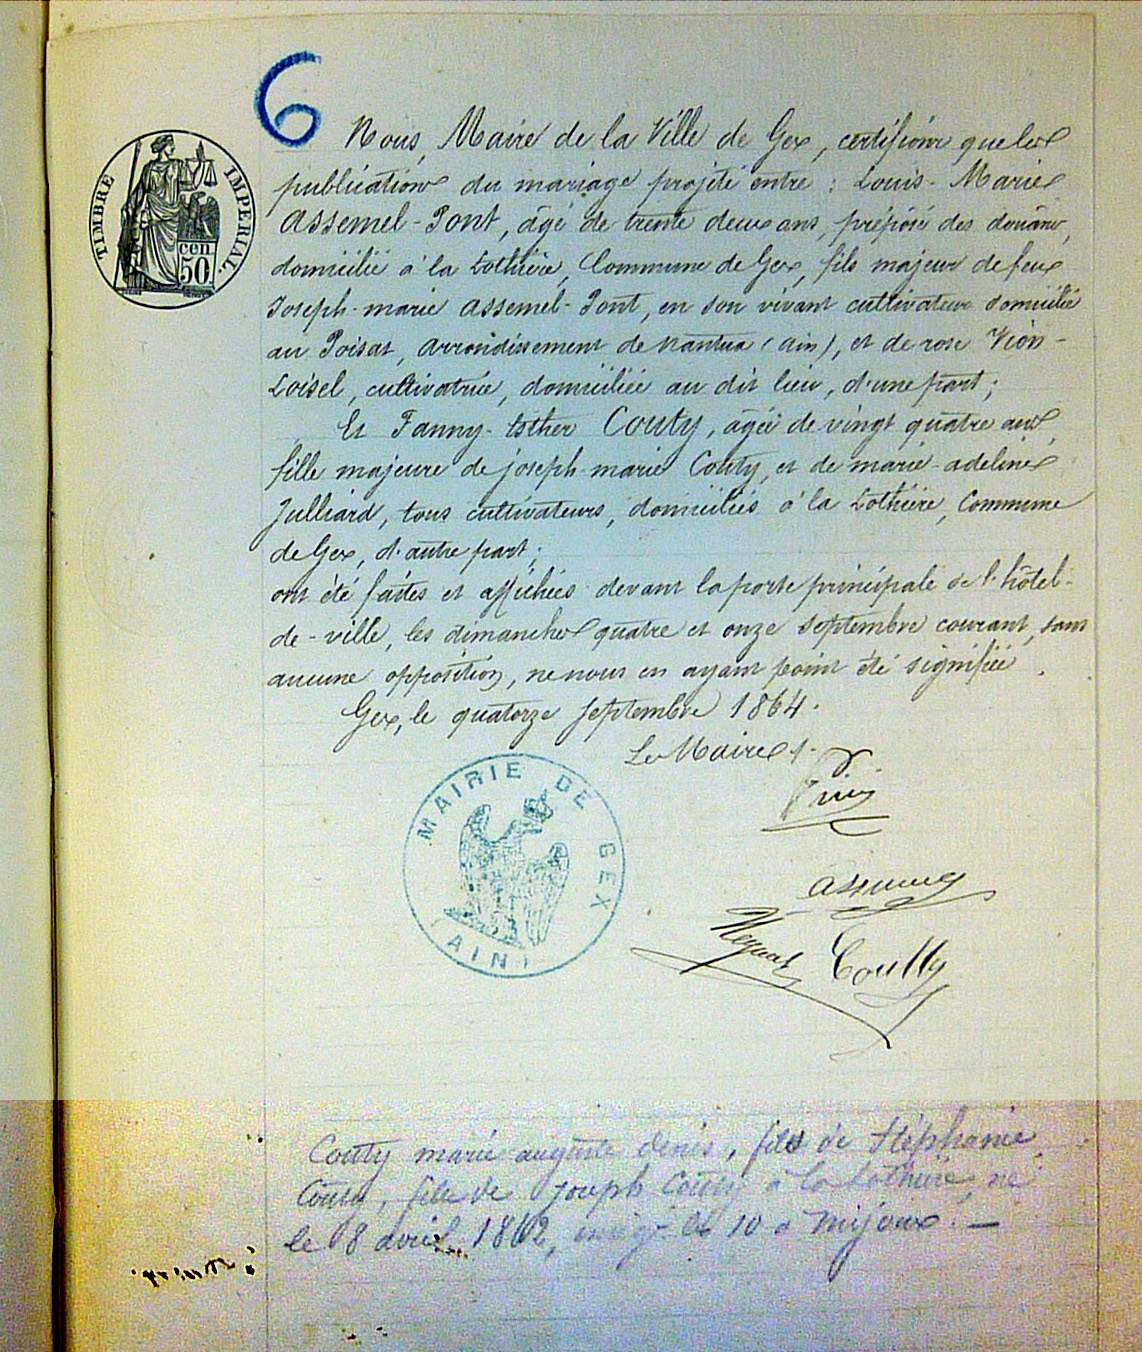 6
TIMBRE IMPERIAL.
50 cen
Nous, Maire de la Ville de Gex, certifions que les
publications du mariage projeté entre : Louis-Marie
Assemel-Pont, âgé de trente deux ans, préposé des douanes,
domicilié à la Lothière, Commune de Gex, fils majeur de feu
Joseph-marie Assemel-Pont, en son vivant cultivateur domicilié
au Poisat, arrondissement de Nantua (ain), et de rose Vion-
Loisel, cultivatrice, domiciliée au dit lieu, d'une part ;
Et Fanny-Esther Couty, âgée de vingt quatre ans,
fille majeure de joseph-marie Couty, et de marie-adeline
Julliard, tous cultivateurs, domiciliés à la Lothière, Commune
de Gex, d'autre part ;
ont été faites et affichées devant la porte principale de l'hôtel-
de-ville, les dimanches quatre et onze septembre courant, sans
aucune opposition, ne nous en ayant point été signifiée.
Gex, le quatorze septembre 1864.
Le Maire
MAIRIE DE GEX
(AIN)
Coutty
Couty marie auguste denis, fils de Stéphanie
Couty, fille de Joseph Couty à la Lothière, né
le 8 avril 1862, le 10 à Mijoux. —